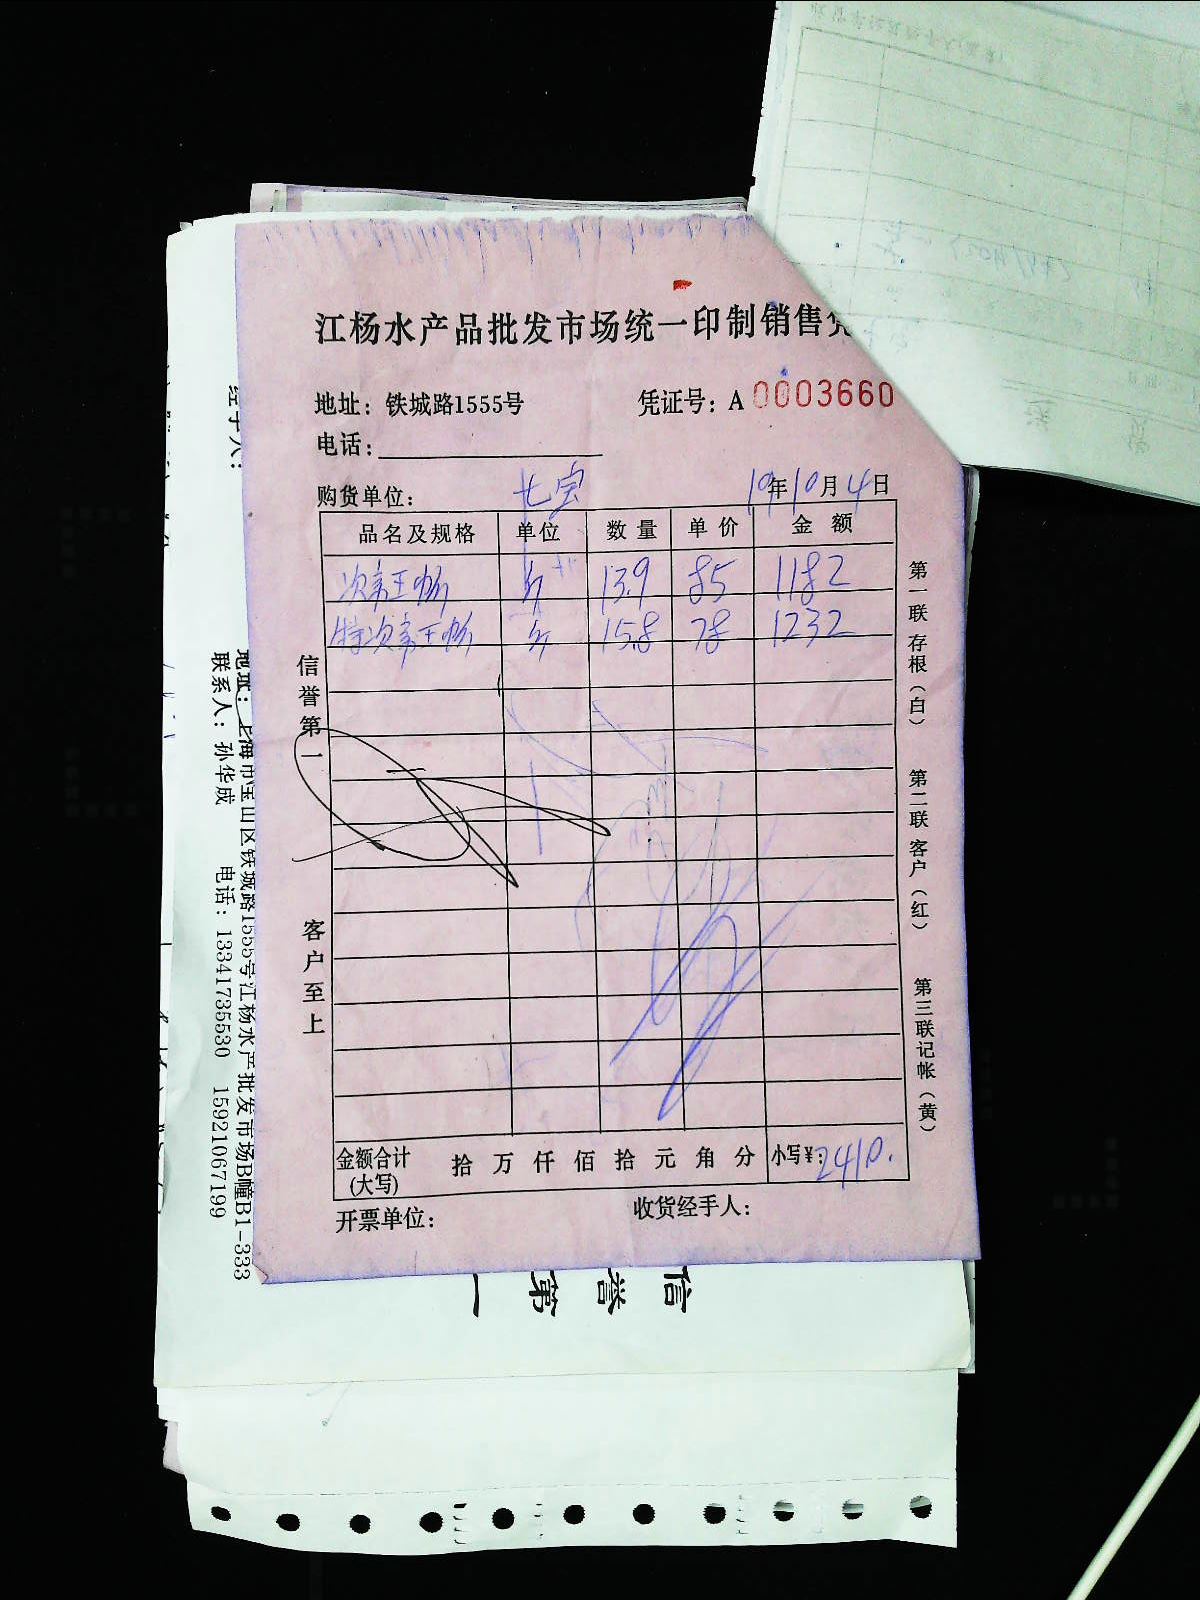 江杨水产品批发市场统一印制销售凭
地址：铁城路1555号
凭证号：A 0003660
电话：
购货单位：七宝
19年10月4日
品名及规格 单位 数量 单价 金额
斤 13.9 85 1182
斤 15.8 78 1232
金额合计(大写) 拾 万 仟 佰 拾 元 角 分 小写¥：2410.
开票单位：
收货经手人：
信誉第一
客户至上
第一联存根（白）
第二联客户（红）
第三联记帐（黄）
经手人：
地址：上海市宝山区铁城路1555号江杨水产批发市场B幢B1-333
联系人：孙华成 电话：13341735530 15921067199
信誉第一